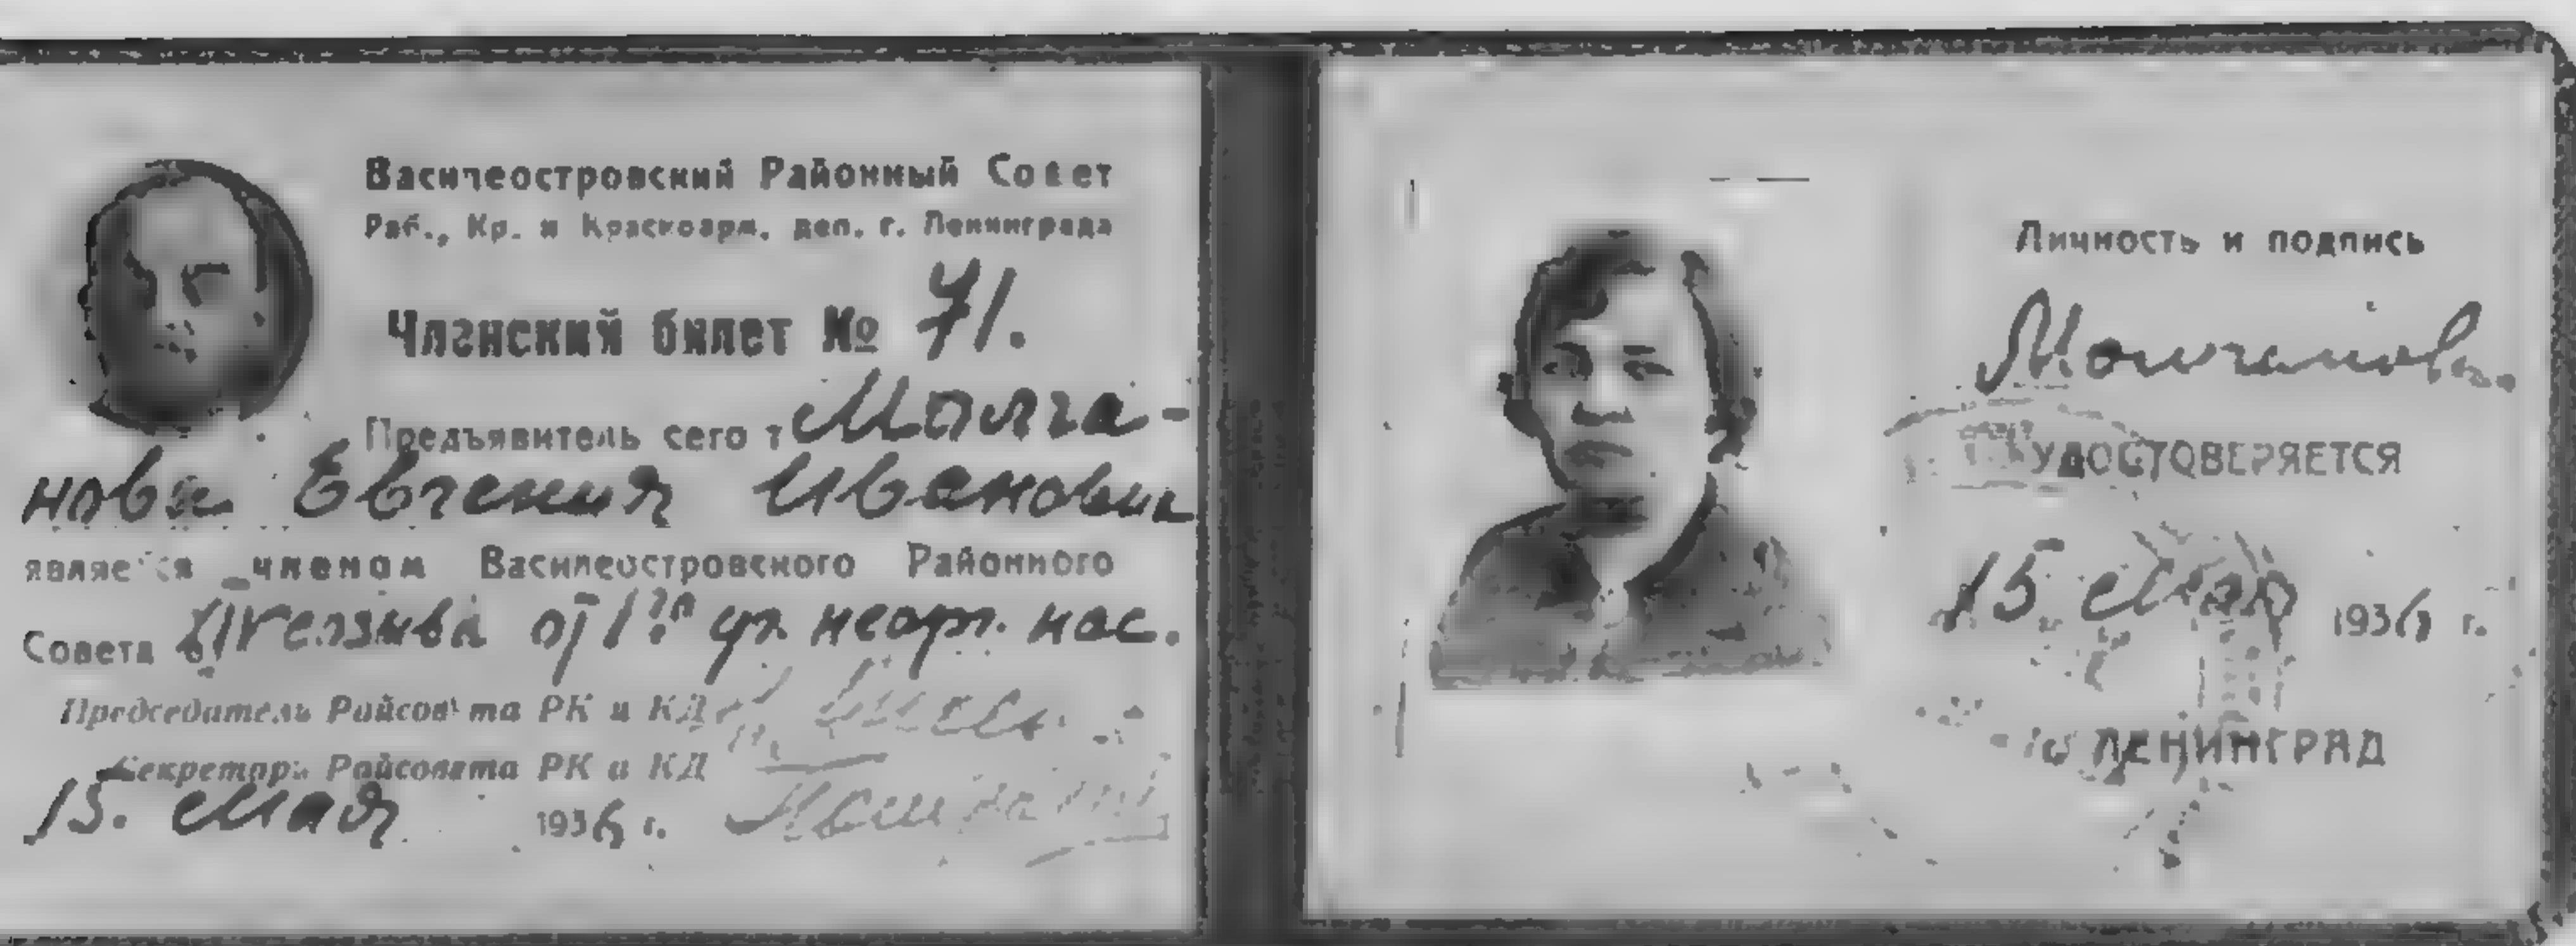 Василеостровский Районный Совет
Раб., Кр. и Красноарм. деп. г. Ленинграда
Членский билет № 71.
Предъявитель сего т Молча-
нова Евгения Ивановна
является членом Василеостровского Районного
Совета от 1го уч. неорг. нас.
Председатель Райсовета РК и КД
Секретарь Райсовета РК и КД
15. мая 1936 г.
Личность и подпись
Молчановой
УДОСТОВЕРЯЕТСЯ
15 мая 1936 г.
ЛЕНИНГРАД